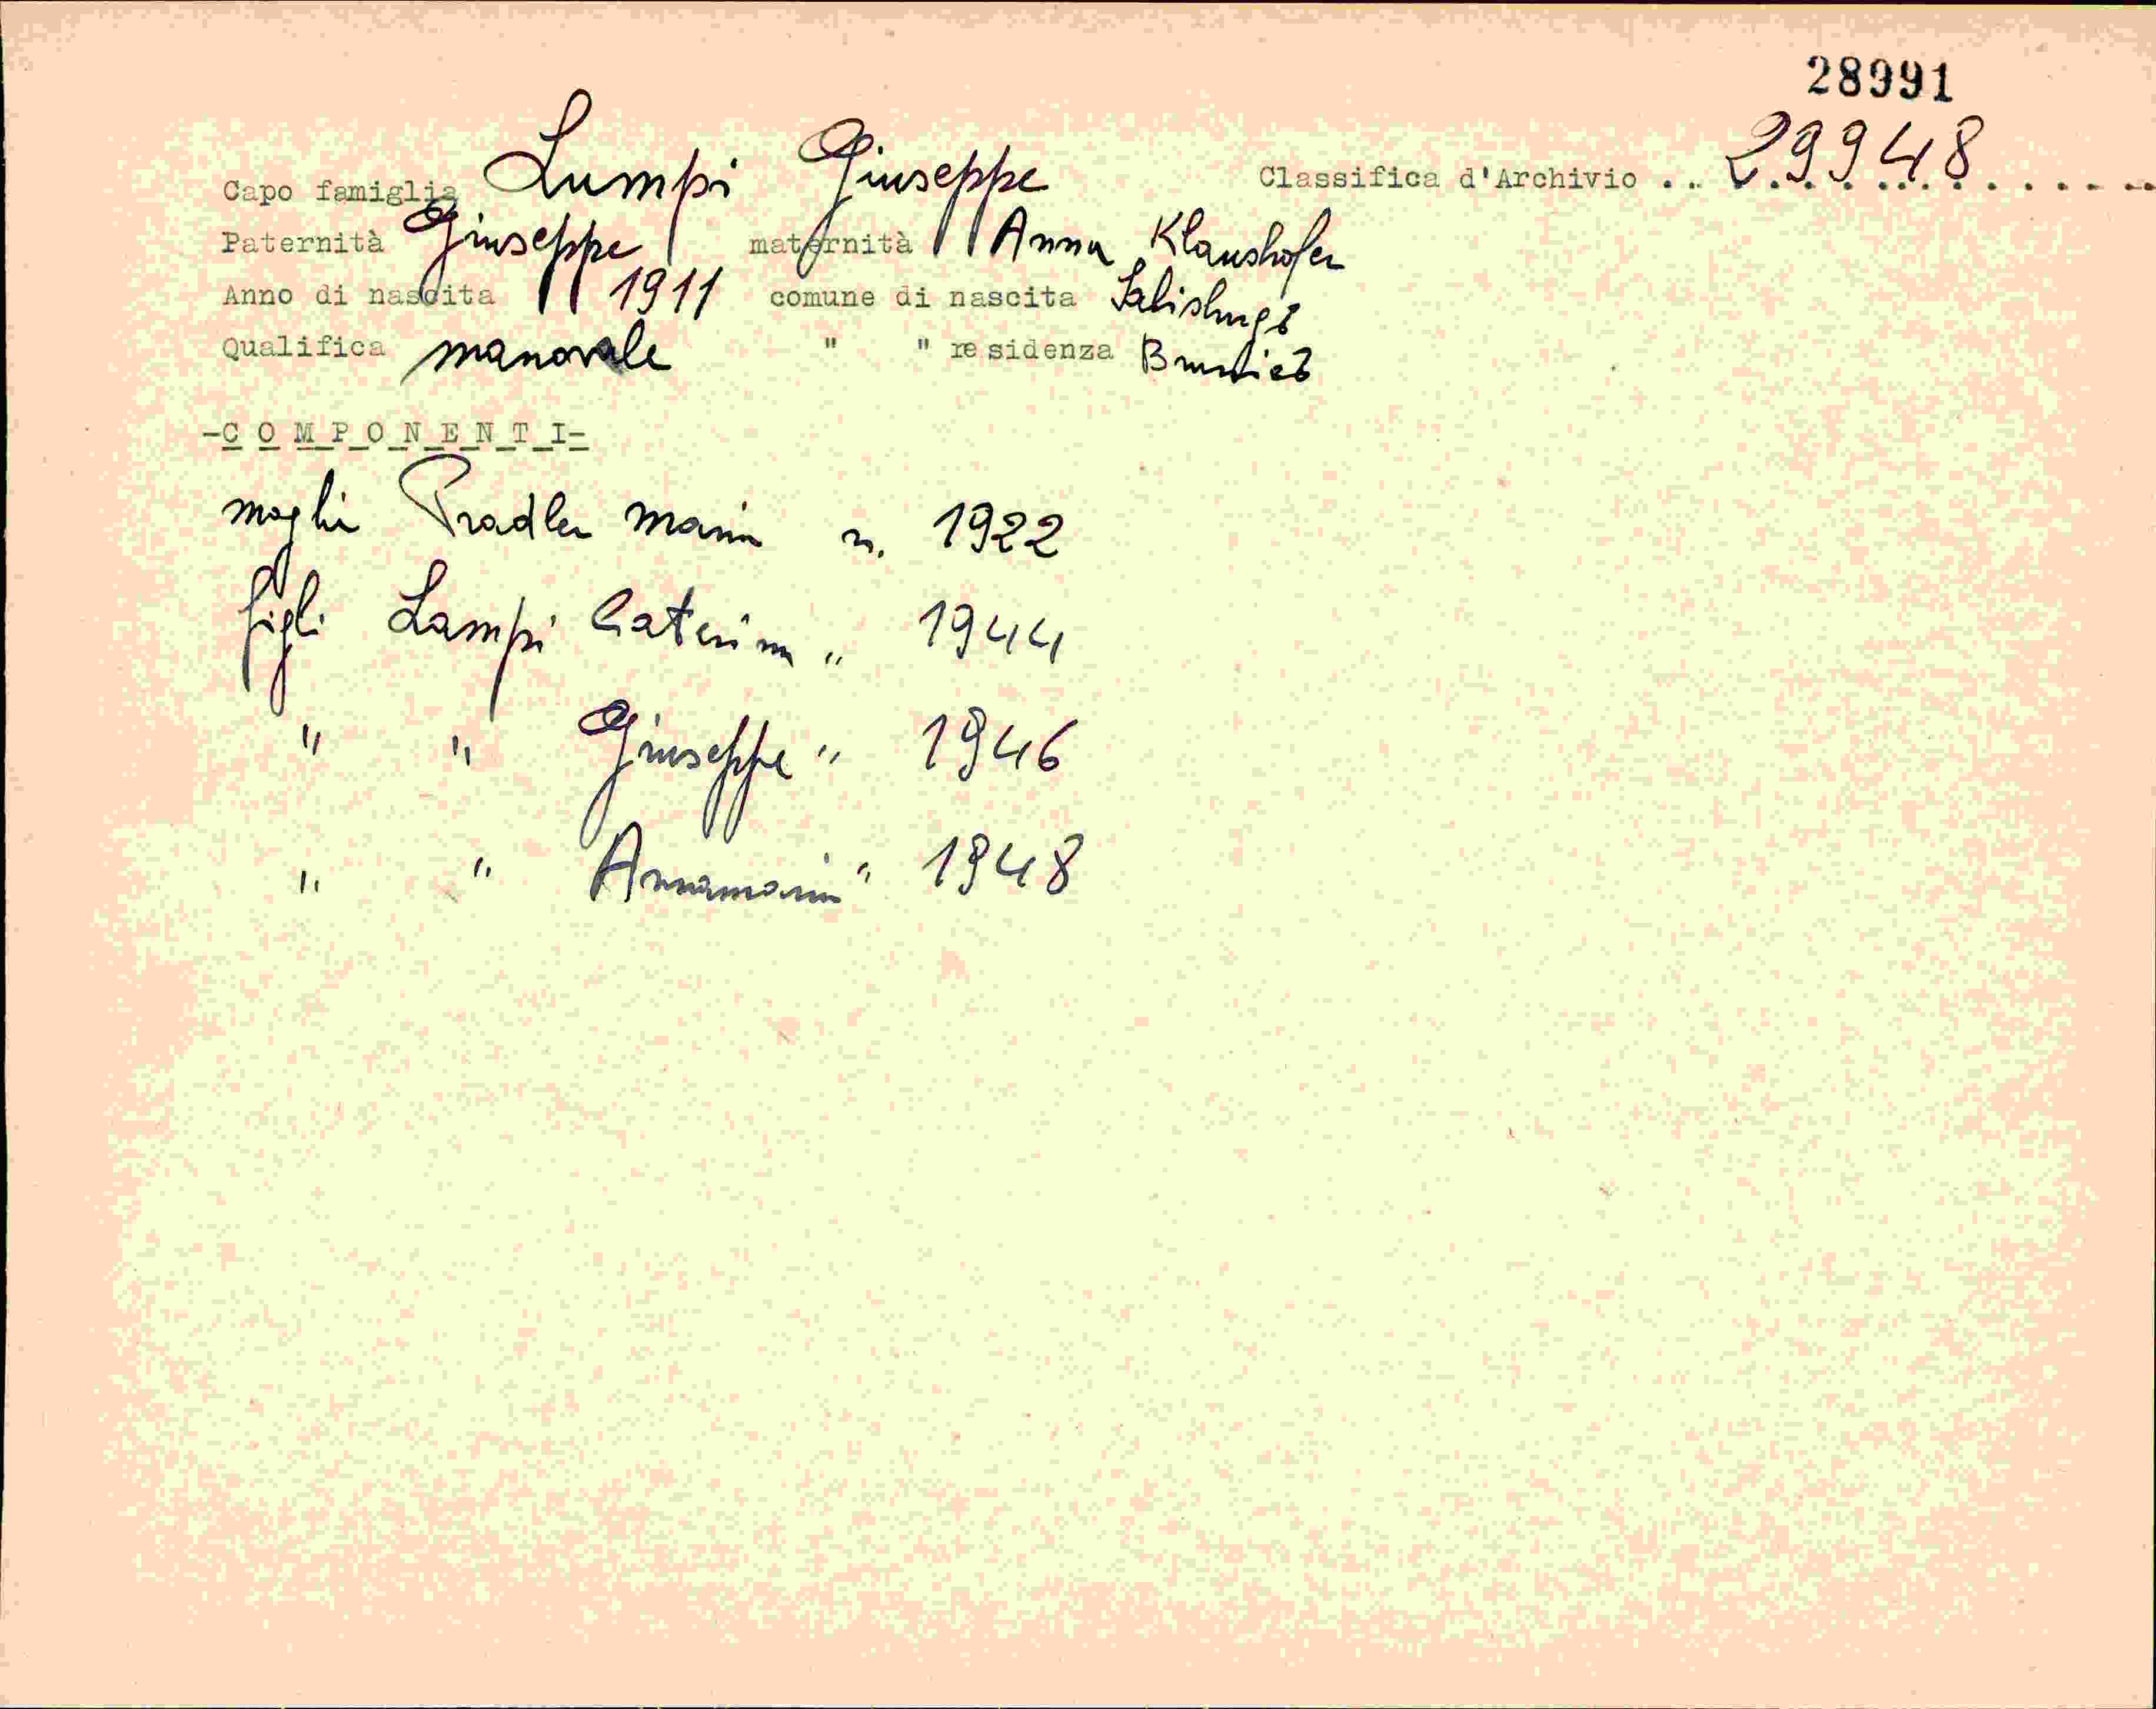 28991
Capo famiglia Lumpi Giuseppe Classifica d'Archivio .. 29948
Paternità Giuseppe maternità Anna Klaushofer
Anno di nascita 1911 comune di nascita
Qualifica manovale " " residenza
-C O M P O N E N T I-
moglie Pradler Maria n. 1922
figli Lampi Caterina " 1944
" " Giuseppe " 1946
" " Annamaria " 1948